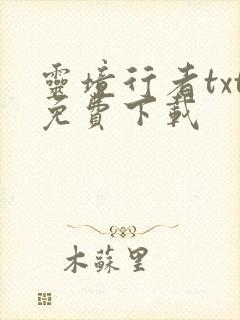 靈境行者txt
免費下載
木蘇里